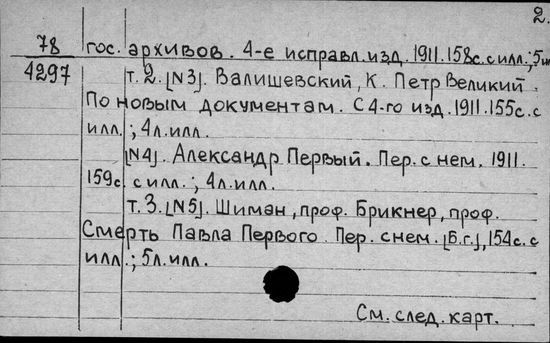 2.
78 гос. архивов. 4-е исправл. изд. 1911. 158с. с илл.; 5ил
4297 т. 2. [N3]. Валишевский, К. Петр Великий.
По новым документам. С 4-го изд. 1911. 155с. с
илл.; 4л. илл.
[N4]. Александр Первый. Пер. с нем. 1911.
159с. с илл.; 4л. илл.
т. 3. [N5]. Шиман, проф. Брикнер, проф.
Смерть Павла Первого. Пер. с нем. [Б.г.], 154с. с
илл.; 5л. илл.
См. след. карт.